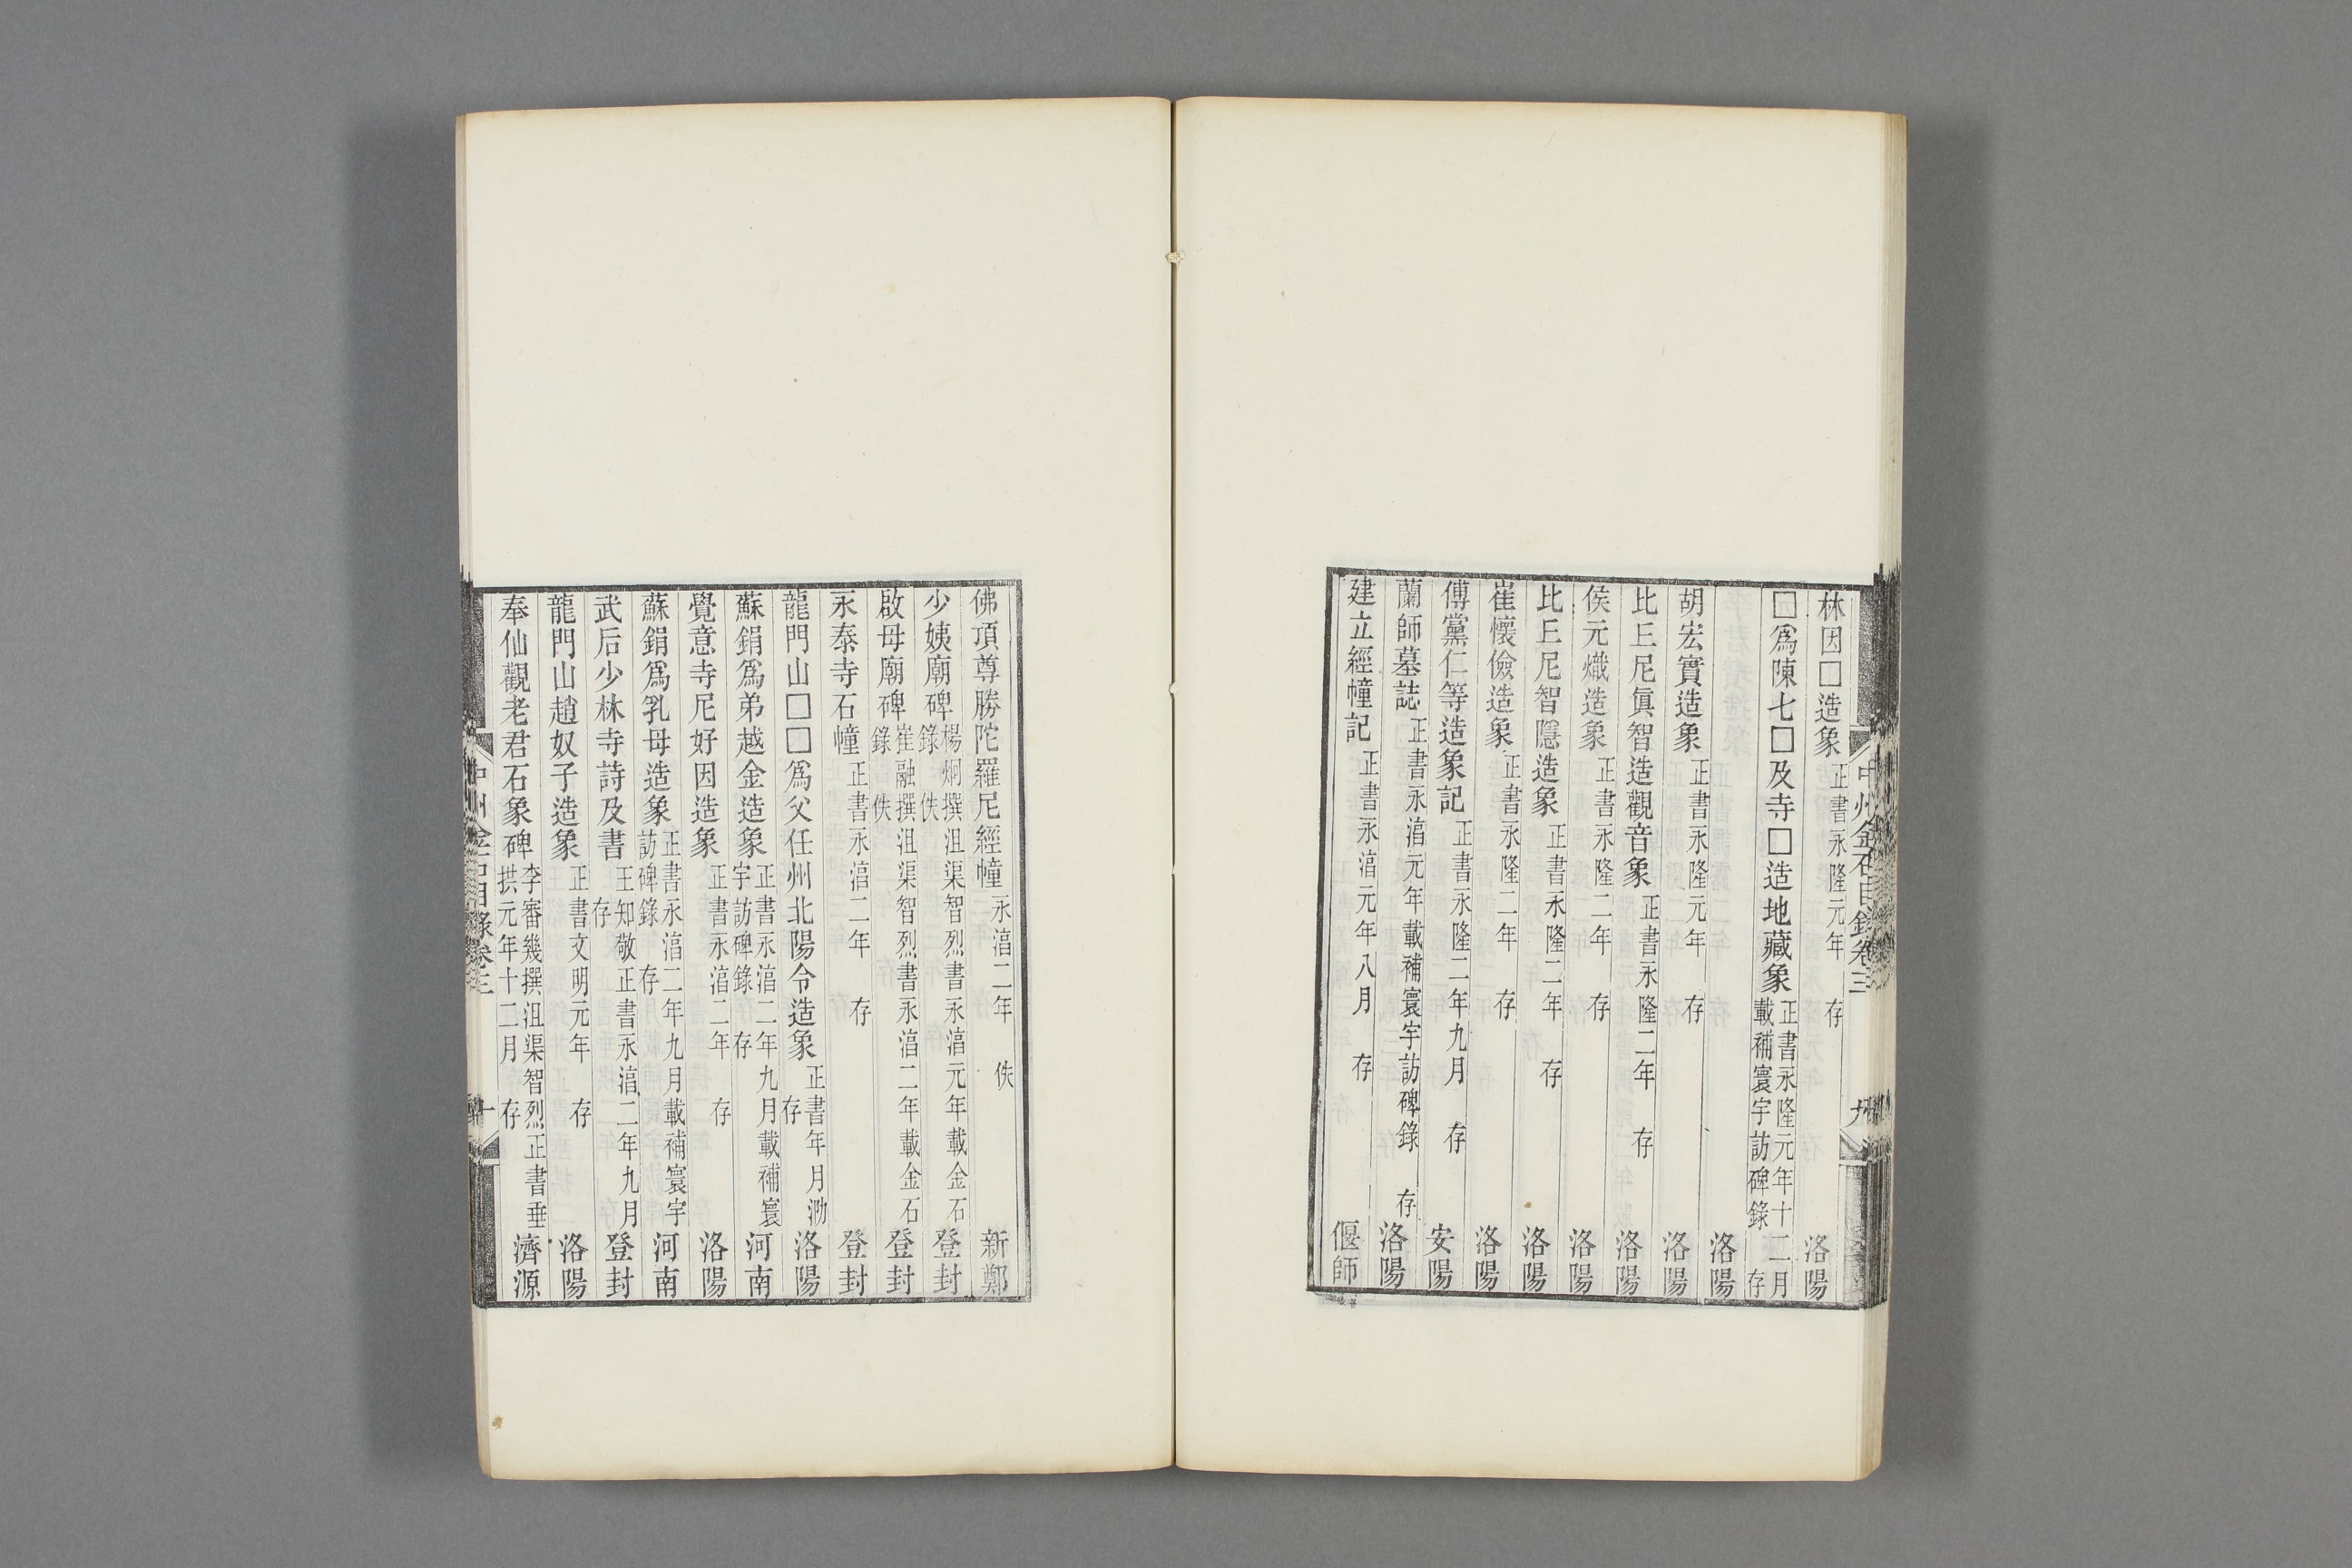 林因□造象 正書永隆元年 存 洛陽
□爲陳七□及寺□造地藏象 正書永隆元年十二月載補寰宇訪碑錄 存
洛陽
胡宏實造象 正書永隆元年 存 洛陽
比丘尼眞智造觀音象 正書永隆二年 存 洛陽
侯元熾造象 正書永隆二年 存 洛陽
比丘尼智隱造象 正書永隆二年 存 洛陽
崔懷儉造象 正書永隆二年 存 洛陽
傅黨仁等造象記 正書永隆二年九月 存 安陽
蘭師墓誌 正書永湻元年載補寰宇訪碑錄 存 洛陽
建立經幢記 正書永湻元年八月 存 偃師
中州金石目錄卷三 九
佛頂尊勝陀羅尼經幢 永湻二年 佚 新鄭
少姨廟碑 楊炯撰沮渠智烈書永湻元年載金石錄 佚 登封
啟母廟碑 崔融撰沮渠智烈書永湻二年載金石錄 佚 登封
永泰寺石幢 正書永湻二年 存 登封
龍門山□□爲父任州北陽令造象 正書年月泐 存 洛陽
蘇鋗爲弟越金造象 正書永湻二年九月載補寰宇訪碑錄 存 河南
覺意寺尼好因造象 正書永湻二年 存 洛陽
蘇鋗爲乳母造象 正書永湻二年九月載補寰宇訪碑錄 存 河南
武后少林寺詩及書 王知敬正書永湻二年九月 存 登封
龍門山趙奴子造象 正書文明元年 存 洛陽
奉仙觀老君石象碑 李審幾撰沮渠智烈正書垂拱元年十二月 存 濟源
中州金石目錄卷三 十